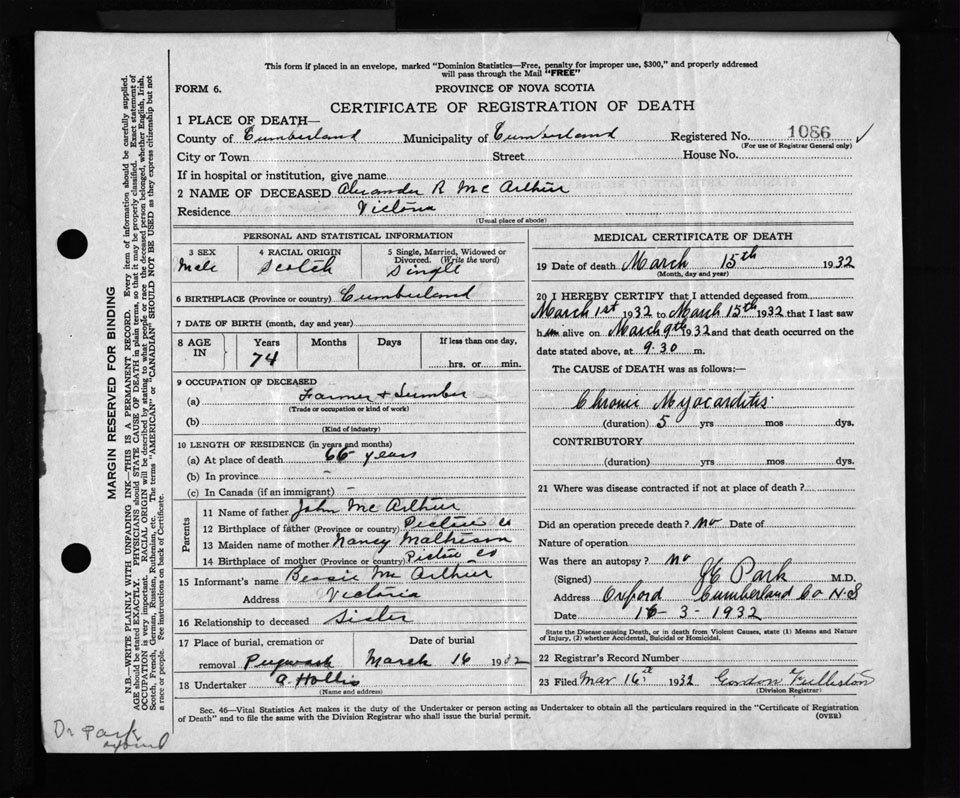 This form if placed in an envelope, marked "Dominion Statistics—Free, penalty for improper use, $300," and properly addressed
will pass through the Mail "FREE"
FORM 6.
PROVINCE OF NOVA SCOTIA
CERTIFICATE OF REGISTRATION OF DEATH
1 PLACE OF DEATH—
County of Cumberland Municipality of Cumberland Registered No. 1086 ✓
(For use of Registrar General only)
City or Town Street House No.
If in hospital or institution, give name
2 NAME OF DECEASED Alexander R McArthur
Residence Victoria
(Usual place of abode)
PERSONAL AND STATISTICAL INFORMATION
3 SEX 4 RACIAL ORIGIN 5 Single, Married, Widowed or
Divorced. (Write the word)
Male Scotch Single
6 BIRTHPLACE (Province or country) Cumberland
7 DATE OF BIRTH (month, day and year)
8 AGE IN Years Months Days If less than one day,
74 hrs. or min.
9 OCCUPATION OF DECEASED
(a) Farmer + Lumber
(Trade or occupation or kind of work)
(b)
(Kind of industry)
10 LENGTH OF RESIDENCE (in years and months)
(a) At place of death 66 years
(b) In province –
(c) In Canada (if an immigrant) –
Parents
11 Name of father John McArthur
12 Birthplace of father (Province or country) Pictou Co
13 Maiden name of mother Nancy Matheson
14 Birthplace of mother (Province or country) Pictou Co
15 Informant's name Bessie McArthur
Address Victoria
16 Relationship to deceased Sister
17 Place of burial, cremation or Date of burial
removal Pugwash March 16 1932
18 Undertaker A. Hollis
(Name and address)
MEDICAL CERTIFICATE OF DEATH
19 Date of death March 15th 1932
(Month, day and year)
20 I HEREBY CERTIFY that I attended deceased from
March 1st 1932 to March 15th 1932 that I last saw
him alive on March 9th 1932 and that death occurred on the
date stated above, at 9.30 m.
The CAUSE of DEATH was as follows:—
Chronic Myocarditis
(duration) 5 yrs mos dys.
CONTRIBUTORY
(duration) yrs mos dys.
21 Where was disease contracted if not at place of death?
Did an operation precede death? no Date of
Nature of operation
Was there an autopsy? no
(Signed) JC Park M.D.
Address Oxford Cumberland Co N.S
Date 16-3-1932
State the Disease causing Death, or in death from Violent Causes, state (1) Means and Nature
of Injury, (2) whether Accidental, Suicidal or Homicidal.
22 Registrar's Record Number
23 Filed Mar 16st 1932 Gordon
(Division Registrar)
Sec. 46—Vital Statistics Act makes it the duty of the Undertaker or person acting as Undertaker to obtain all the particulars required in the "Certificate of Registration
of Death" and to file the same with the Division Registrar who shall issue the burial permit.
(OVER)
MARGIN RESERVED FOR BINDING
N.B.—WRITE PLAINLY WITH UNFADING INK—THIS IS A PERMANENT RECORD. Every item of information should be carefully supplied.
AGE should be stated EXACTLY. PHYSICIANS should STATE CAUSE OF DEATH in plain terms, so that it may be properly classified. Exact statement of
OCCUPATION is very important. RACIAL ORIGIN will be described by stating to what people or race the deceased person belonged, whether English, Irish,
Scotch, French, German, Russian, Ruthenian, etc. The terms "AMERICAN" or "CANADIAN" SHOULD NOT BE USED as they express citizenship but not
a race or people. See instructions on back of Certificate.
Dr Park
Oxford